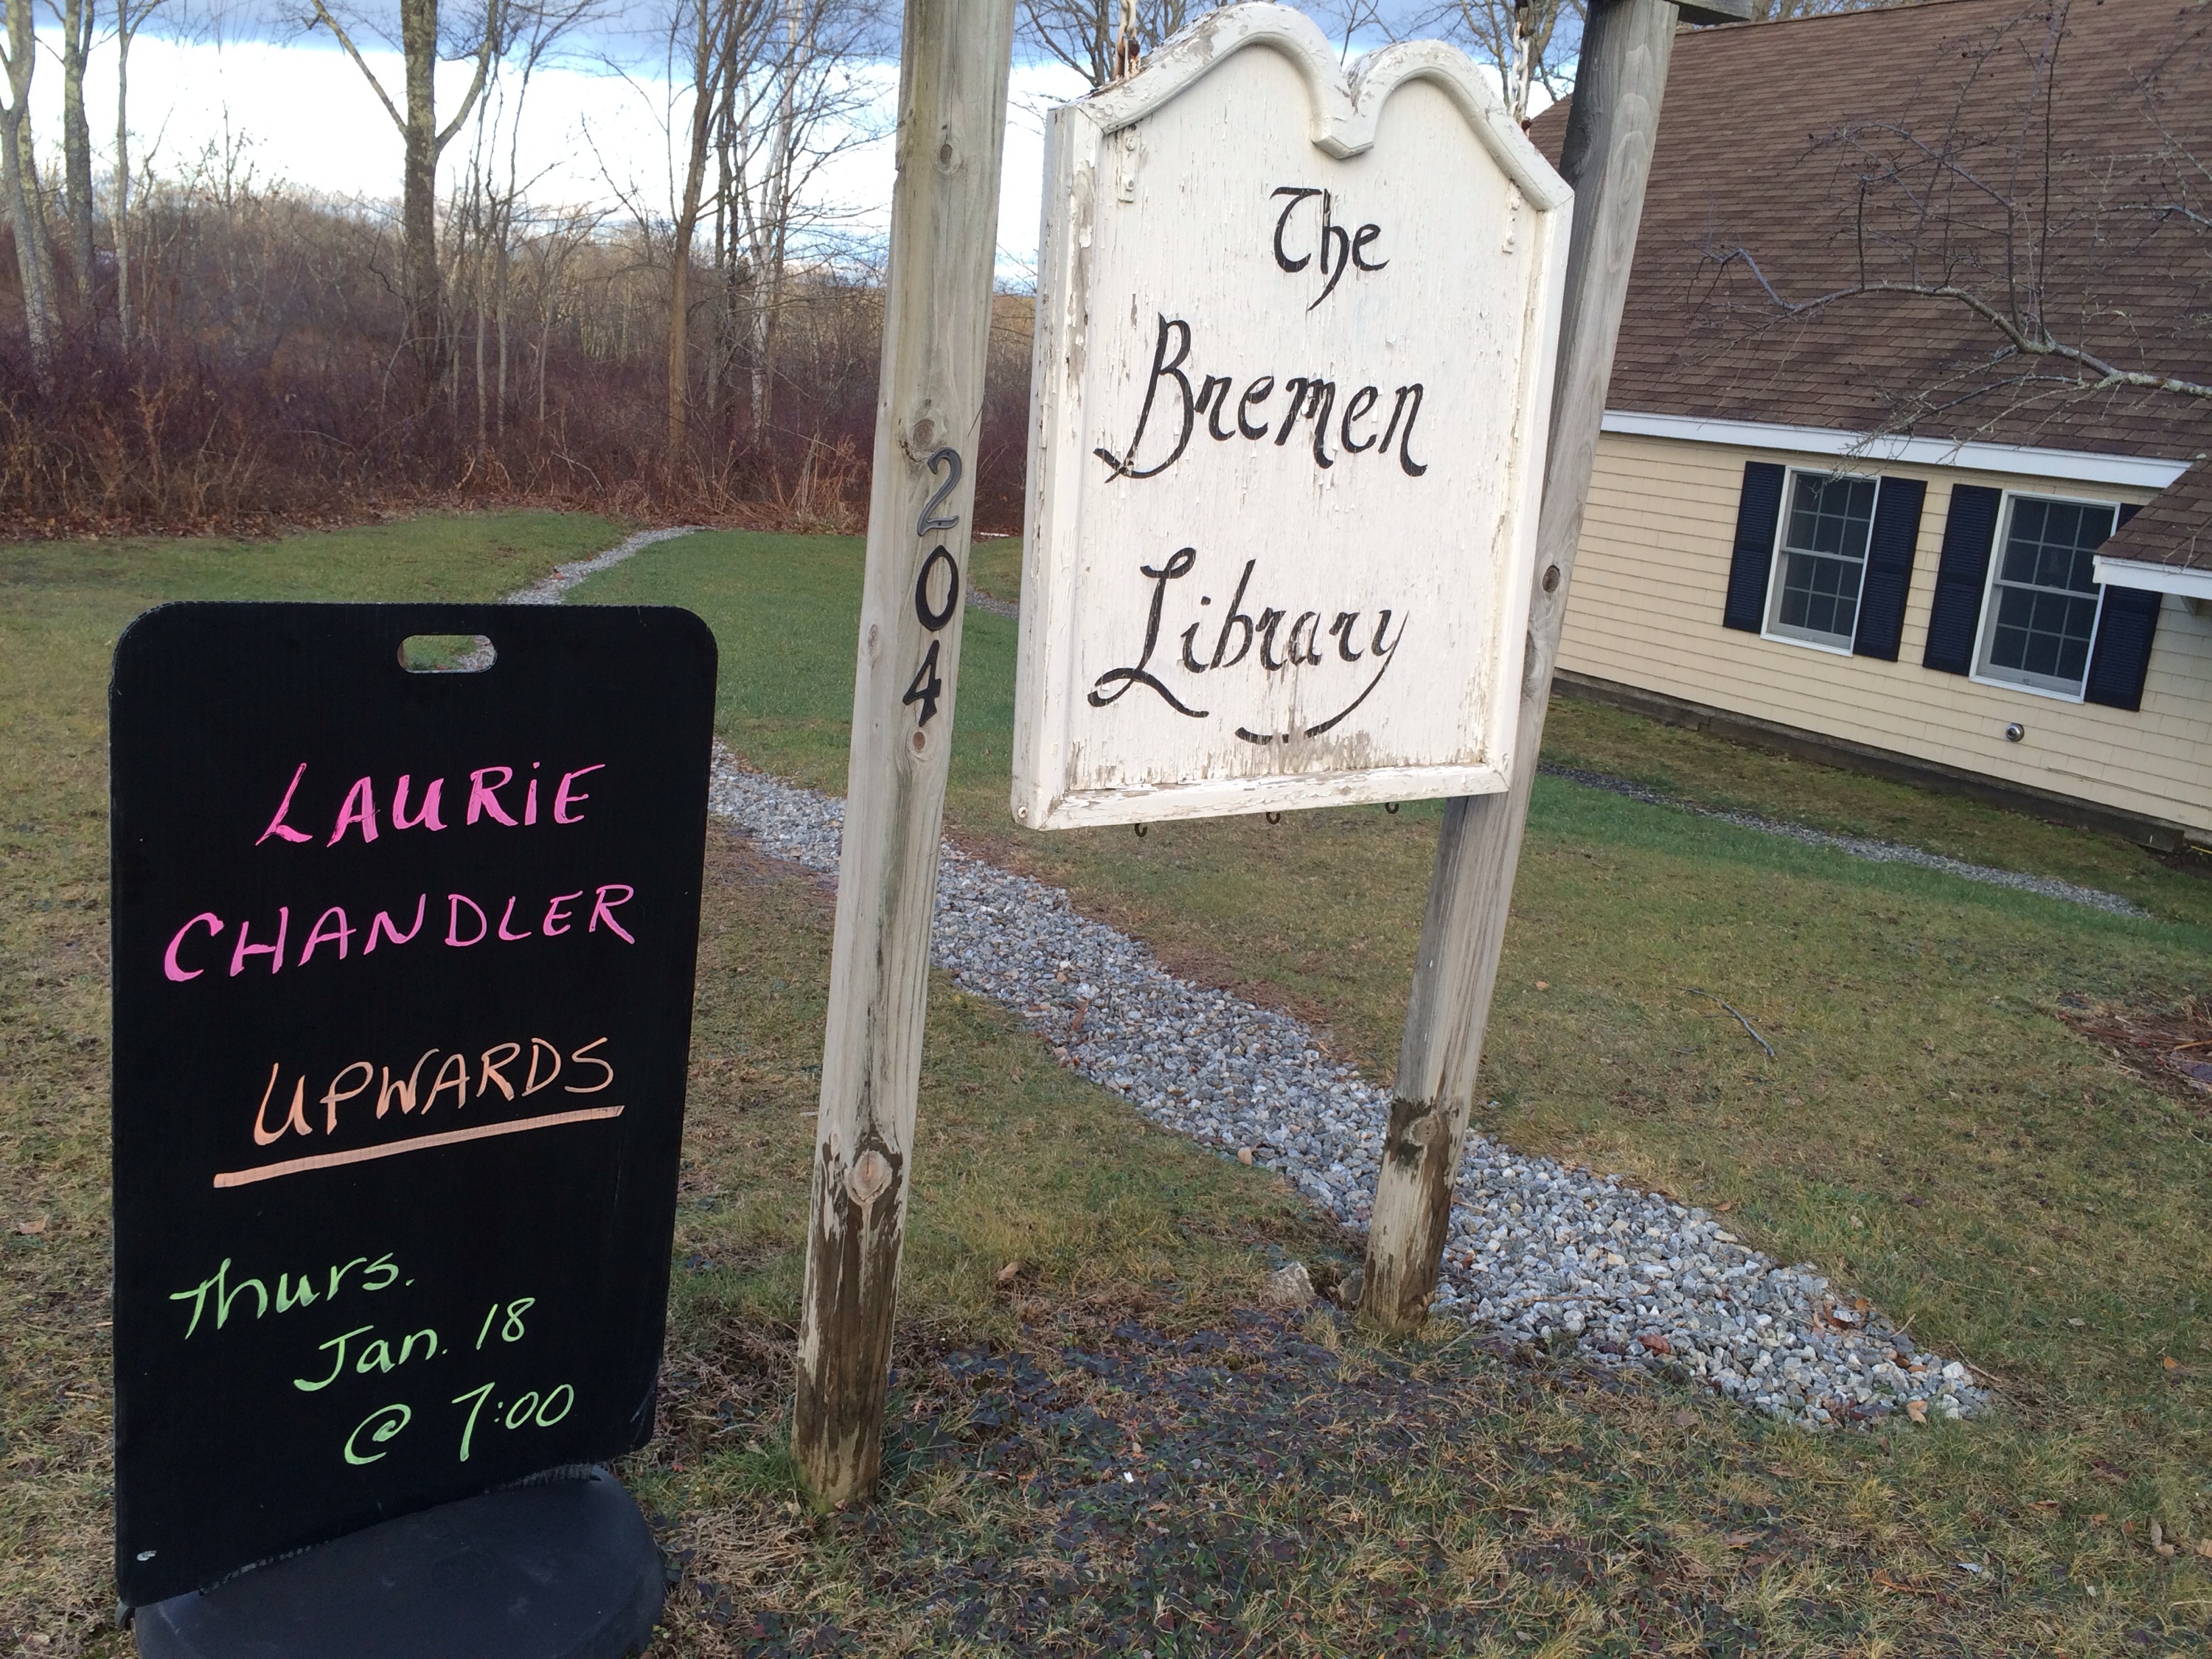 LAURiE
CHANDLER
UPWARDS
Thurs.
Jan. 18
@ 7:00
204
The
Bremen
Library